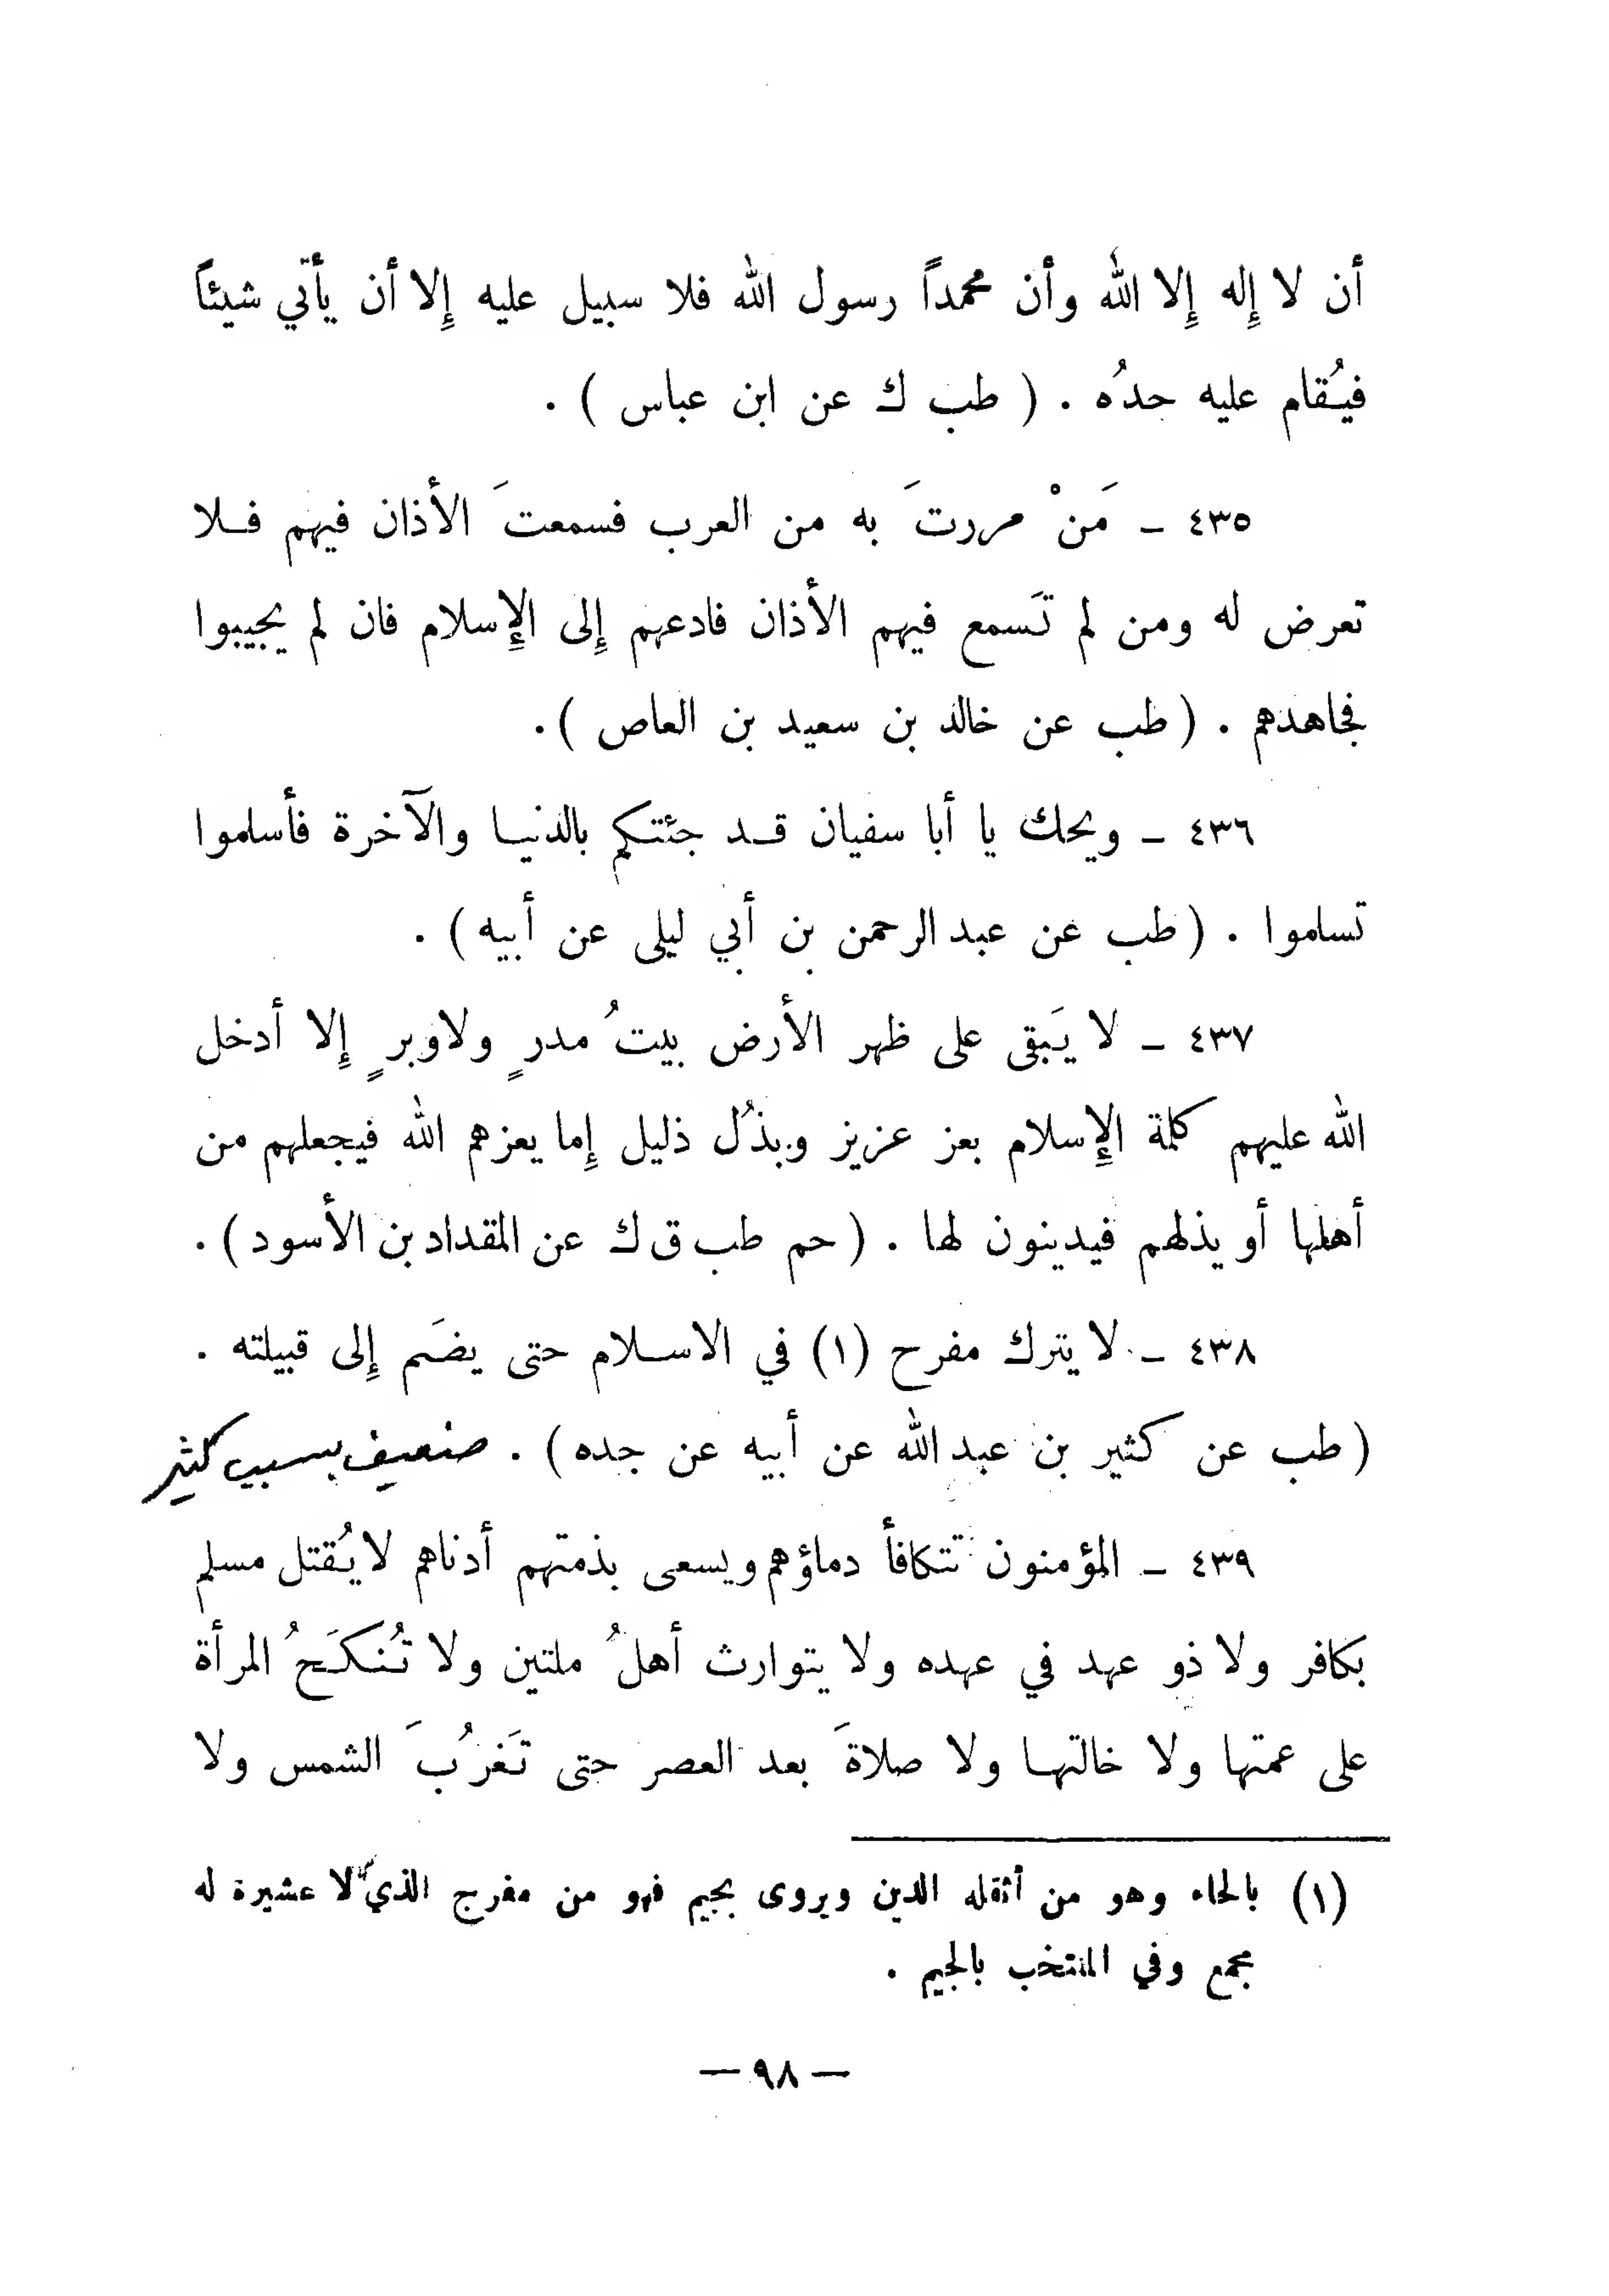 أن لا إله إلا الله وأن محمداً رسول الله فلا سبيل عليه إلا أن يأتي شيئاً
فيُقام عليه حدُه . ( طب ك عن ابن عباس ) .
٤٣٥ ـ مَنْ مررتَ به من العرب فسمعتَ الأذان فيهم فلا
تعرض له ومن لم تَسمع فيهم الأذان فادعهم إلى الإسلام فان لم يجيبوا
فجاهدهم . ( طب عن خالد بن سعيد بن العاص ) .
٤٣٦ ـ ويحك يا أبا سفيان قد جئتكم بالدنيا والآخرة فأسلموا
تسلموا . ( طب عن عبد الرحمن بن أبي ليلى عن أبيه ) .
٤٣٧ ـ لا يَبقى على ظهر الأرض بيتُ مدرٍ ولا وبرٍ إلا أدخل
الله عليهم كلمة الإسلام بعز عزيز وبذُل ذليل إما يعزهم الله فيجعلهم من
أهلها أو يذلهم فيدينون لها . ( حم طب ق ك عن المقداد بن الأسود ) .
٤٣٨ ـ لا يترك مفرح (١) في الاسلام حتى يضَم إلى قبيلته .
( طب عن كثير بن عبد الله عن أبيه عن جده ) . ضعيف بسبب كثير
٤٣٩ ـ المؤمنون تتكافأ دماؤهم ويسعى بذمتهم أدناهم لا يُقتل مسلم
بكافر ولا ذو عهد في عهده ولا يتوارث أهلُ ملتين ولا تُنكَحُ المرأة
على عمتها ولا خالتها ولا صلاةَ بعد العصر حتى تَغرُبَ الشمس ولا
(١) بالحاء وهو من أثقله الدين ويروى بجيم فهو من مفرج الذي لا عشيرة له
مجمع وفي المنتخب بالجيم .
— ٩٨ —